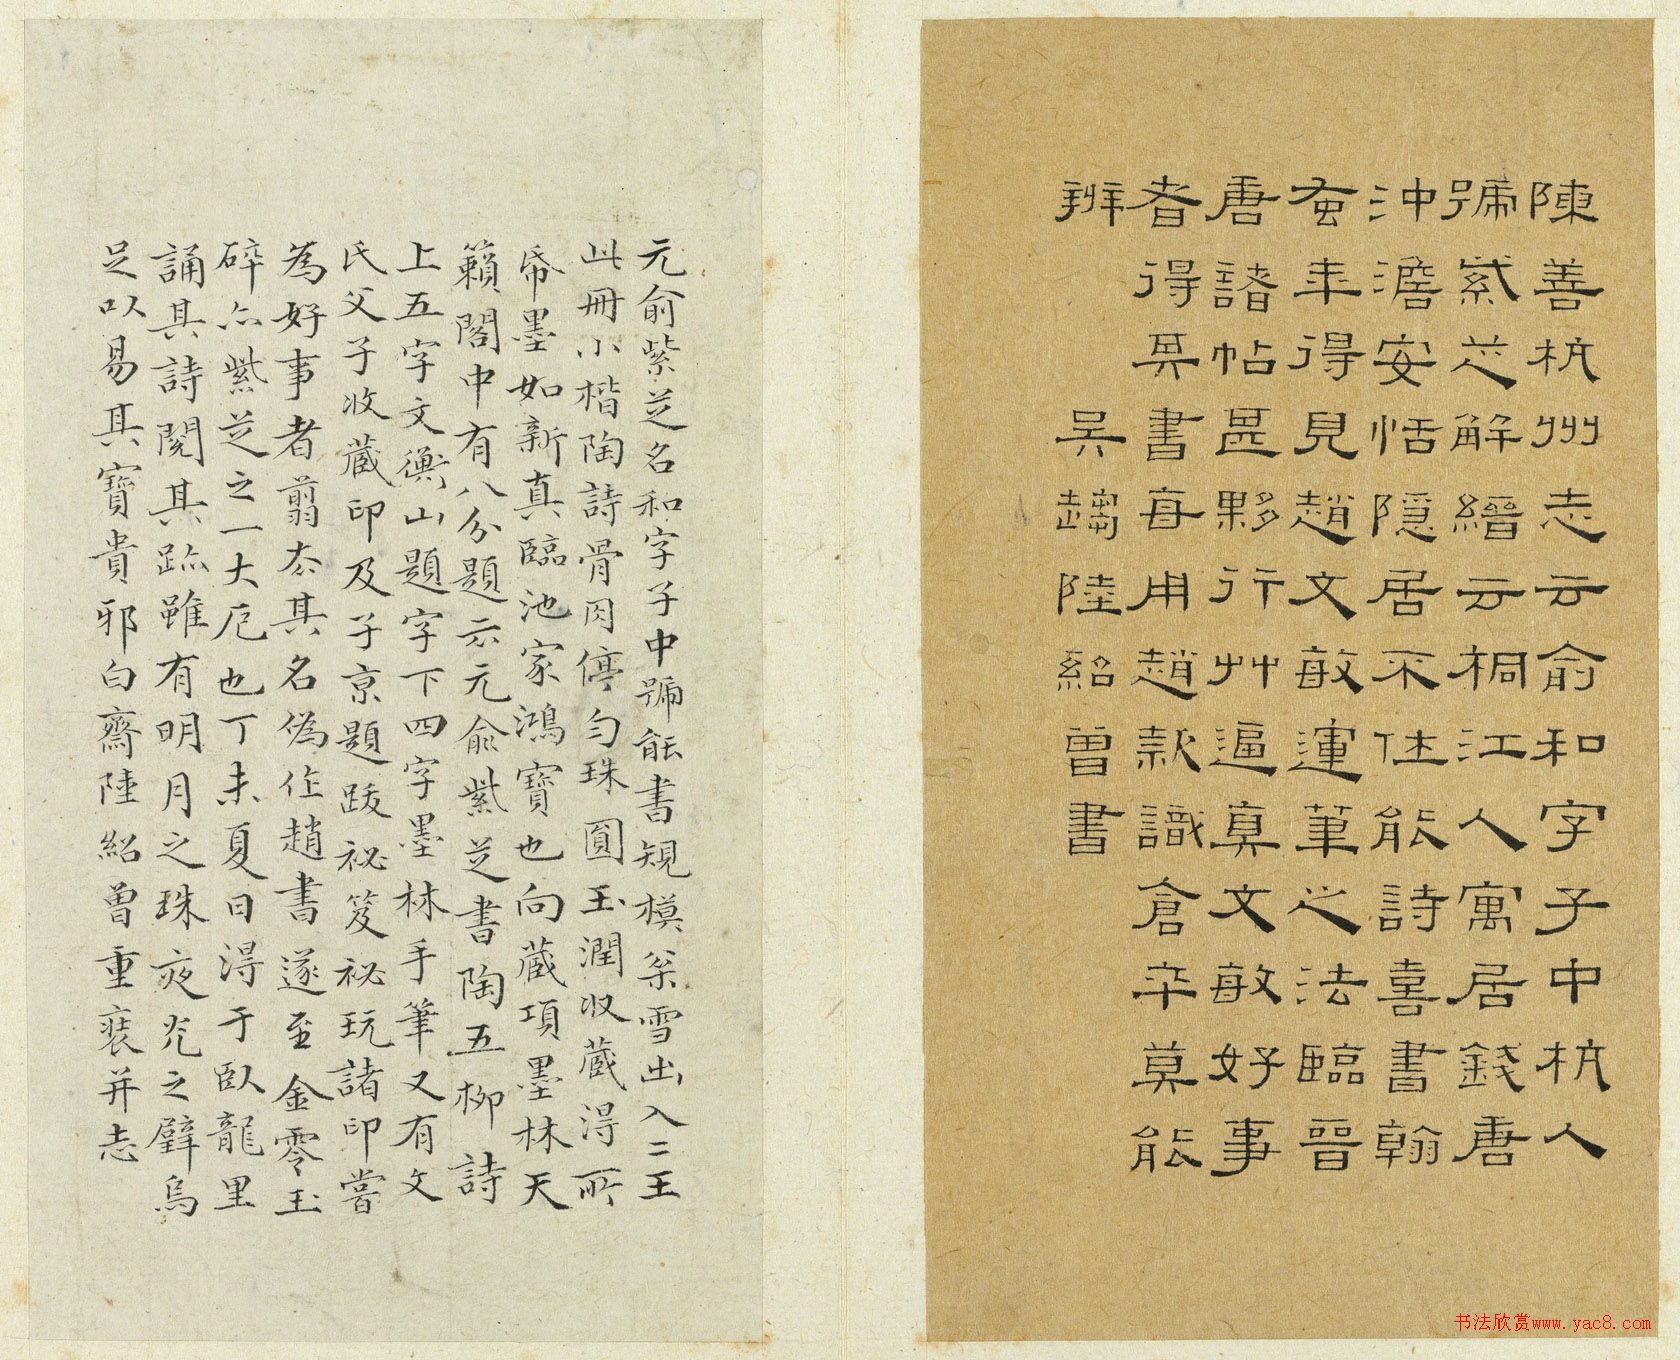 陳善杭州志云俞和字子中杭人
號紫芝解縉云桐江人寓居錢唐
沖澹安恬隱居不仕能詩喜書翰
蚤年得見趙文敏運筆之法臨晉
唐諸帖甚夥行艸逼真文敏好事
者得其書每用趙款識倉卒莫能
辨
吳趨陸紹曾書
元俞紫芝名和字子中號能書規模松雪出入二王
此冊小楷陶詩骨肉停勻珠圓玉潤收藏得所
帋墨如新真臨池家鴻寶也向藏項墨林天
籟閣中有八分題云元俞紫芝書陶五柳詩
上五字文衡山題字下四字墨林手筆又有文
氏父子收藏印及子京題跋祕笈祕玩諸印嘗
為好事者翦去其名偽作趙書遂至金零玉
碎亦紫芝之一大厄也丁未夏日得于臥龍里
誦其詩閱其跡雖有明月之珠夜光之璧烏
足以易其寶貴邪白齋陸紹曾重裝并志
书法欣赏www.yac8.com